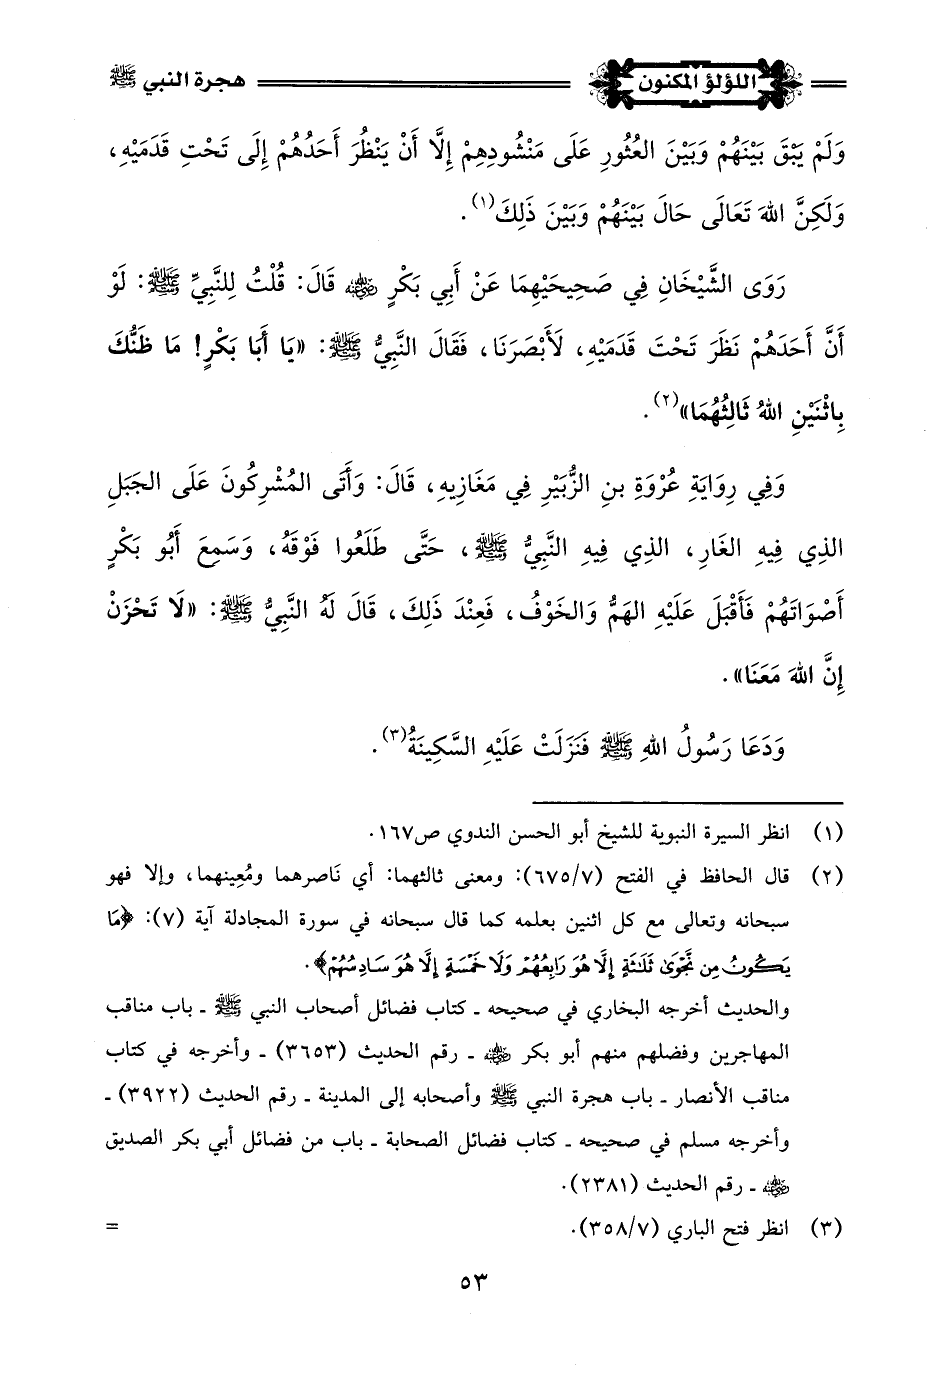 اللؤلؤ المكنون هجرة النبي ﷺ
وَلَمْ يَبْقَ بَيْنَهُمْ وَبَيْنَ العُثُورِ عَلَى مَنْشُودِهِمْ إِلَّا أَنْ يَنْظُرَ أَحَدُهُمْ إِلَى تَحْتِ قَدَمَيْهِ،
وَلَكِنَّ اللهَ تَعَالَى حَالَ بَيْنَهُمْ وَبَيْنَ ذَلِكَ(١).
رَوَى الشَّيْخَانِ فِي صَحِيحَيْهِمَا عَنْ أَبِي بَكْرٍ رضي الله عنه قَالَ: قُلْتُ لِلنَّبِيِّ ﷺ: لَوْ
أَنَّ أَحَدَهُمْ نَظَرَ تَحْتَ قَدَمَيْهِ، لَأَبْصَرَنَا، فَقَالَ النَّبِيُّ ﷺ: «يَا أَبَا بَكْرٍ! مَا ظَنُّكَ
بِاثْنَيْنِ اللهُ ثَالِثُهُمَا»(٢).
وَفِي رِوَايَةِ عُرْوَةَ بنِ الزُّبَيْرِ فِي مَغَازِيهِ، قَالَ: وَأَتَى المُشْرِكُونَ عَلَى الجَبَلِ
الذِي فِيهِ الغَارِ، الذِي فِيهِ النَّبِيُّ ﷺ، حَتَّى طَلَعُوا فَوْقَهُ، وَسَمِعَ أَبُو بَكْرٍ
أَصْوَاتَهُمْ فَأَقْبَلَ عَلَيْهِ الهَمُّ وَالخَوْفُ، فَعِنْدَ ذَلِكَ، قَالَ لَهُ النَّبِيُّ ﷺ: «لَا تَحْزَنْ
إِنَّ اللهَ مَعَنَا».
وَدَعَا رَسُولُ اللهِ ﷺ فَنَزَلَتْ عَلَيْهِ السَّكِينَةُ(٣).
(١) انظر السيرة النبوية للشيخ أبو الحسن الندوي ص١٦٧.
(٢) قال الحافظ في الفتح (٦٧٥/٧): ومعنى ثالثهما: أي نَاصرهما ومُعِينهما، وإلا فهو
سبحانه وتعالى مع كل اثنين بعلمه كما قال سبحانه في سورة المجادلة آية (٧): ﴿مَا
يَكُونُ مِن نَّجْوَىٰ ثَلَاثَةٍ إِلَّا هُوَ رَابِعُهُمْ وَلَا خَمْسَةٍ إِلَّا هُوَ سَادِسُهُمْ﴾.
والحديث أخرجه البخاري في صحيحه ـ كتاب فضائل أصحاب النبي ﷺ ـ باب مناقب
المهاجرين وفضلهم منهم أبو بكر رضي الله عنه ـ رقم الحديث (٣٦٥٣) ـ وأخرجه في كتاب
مناقب الأنصار ـ باب هجرة النبي ﷺ وأصحابه إلى المدينة ـ رقم الحديث (٣٩٢٢) ـ
وأخرجه مسلم في صحيحه ـ كتاب فضائل الصحابة ـ باب من فضائل أبي بكر الصديق
رضي الله عنه ـ رقم الحديث (٢٣٨١).
(٣) انظر فتح الباري (٣٥٨/٧). =
٥٣